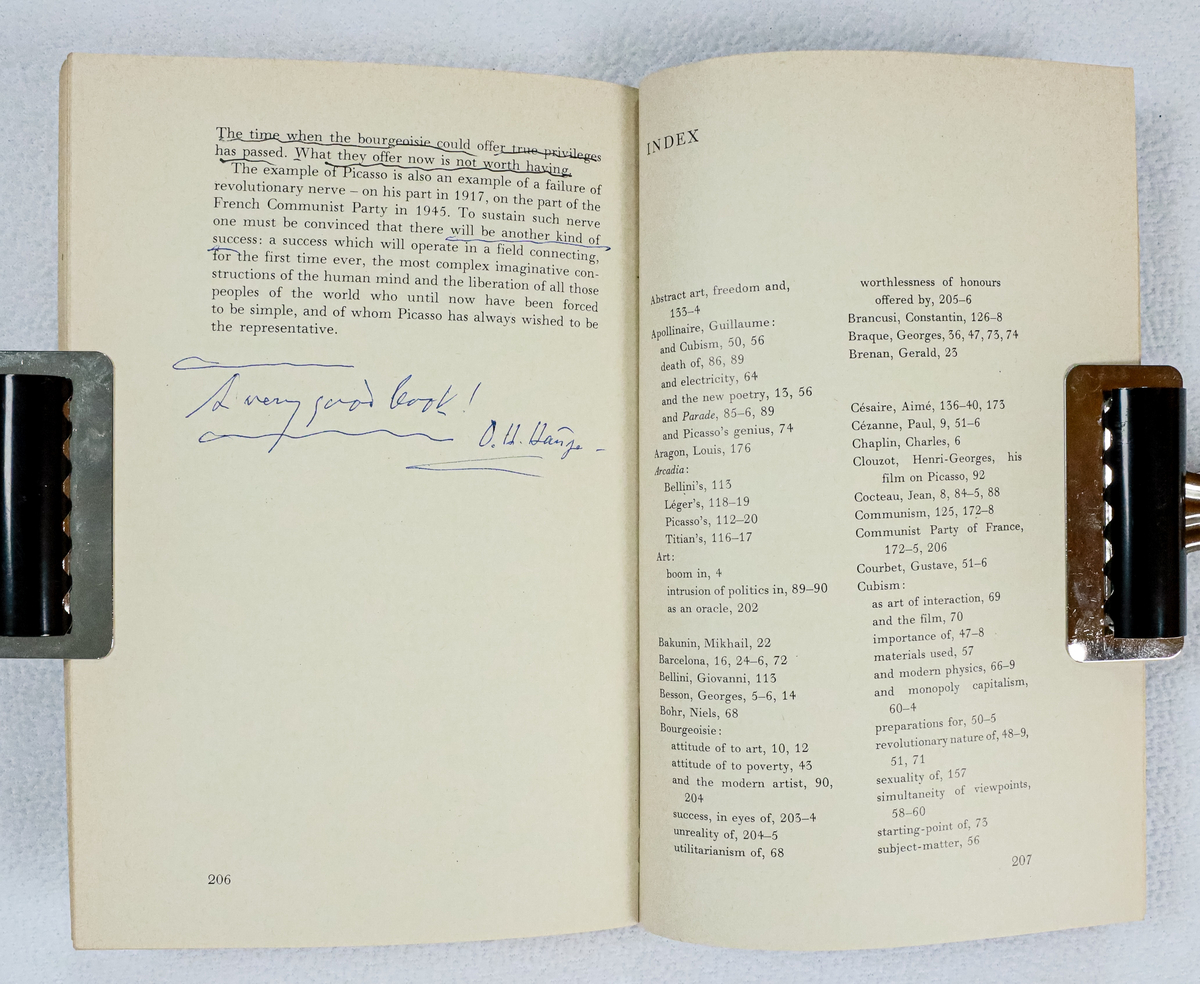 The time when the bourgeoisie could offer true privileges
has passed. What they offer now is not worth having.
The example of Picasso is also an example of a failure of
revolutionary nerve – on his part in 1917, on the part of the
French Communist Party in 1945. To sustain such nerve
one must be convinced that there will be another kind of
success: a success which will operate in a field connecting,
for the first time ever, the most complex imaginative con-
structions of the human mind and the liberation of all those
peoples of the world who until now have been forced
to be simple, and of whom Picasso has always wished to be
the representative.
A very good book!
O. H.
206
INDEX
Abstract art, freedom and,
133–4
Apollinaire, Guillaume:
and Cubism, 50, 56
death of, 86, 89
and electricity, 64
and the new poetry, 13, 56
and Parade, 85–6, 89
and Picasso's genius, 74
Aragon, Louis, 176
Arcadia:
Bellini's, 113
Léger's, 118–19
Picasso's, 112–20
Titian's, 116–17
Art:
boom in, 4
intrusion of politics in, 89–90
as an oracle, 202
Bakunin, Mikhail, 22
Barcelona, 16, 24–6, 72
Bellini, Giovanni, 113
Besson, Georges, 5–6, 14
Bohr, Niels, 68
Bourgeoisie:
attitude of to art, 10, 12
attitude of to poverty, 43
and the modern artist, 90,
204
success, in eyes of, 203–4
unreality of, 204–5
utilitarianism of, 68
worthlessness of honours
offered by, 205–6
Brancusi, Constantin, 126–8
Braque, Georges, 36, 47, 73, 74
Brenan, Gerald, 23
Césaire, Aimé, 136–40, 173
Cézanne, Paul, 9, 51–6
Chaplin, Charles, 6
Clouzot, Henri-Georges, his
film on Picasso, 92
Cocteau, Jean, 8, 84–5, 88
Communism, 125, 172–8
Communist Party of France,
172–5, 206
Courbet, Gustave, 51–6
Cubism:
as art of interaction, 69
and the film, 70
importance of, 47–8
materials used, 57
and modern physics, 66–9
and monopoly capitalism,
60–4
preparations for, 50–5
revolutionary nature of, 48–9,
51, 71
sexuality of, 157
simultaneity of viewpoints,
58–60
starting-point of, 73
subject-matter, 56
207